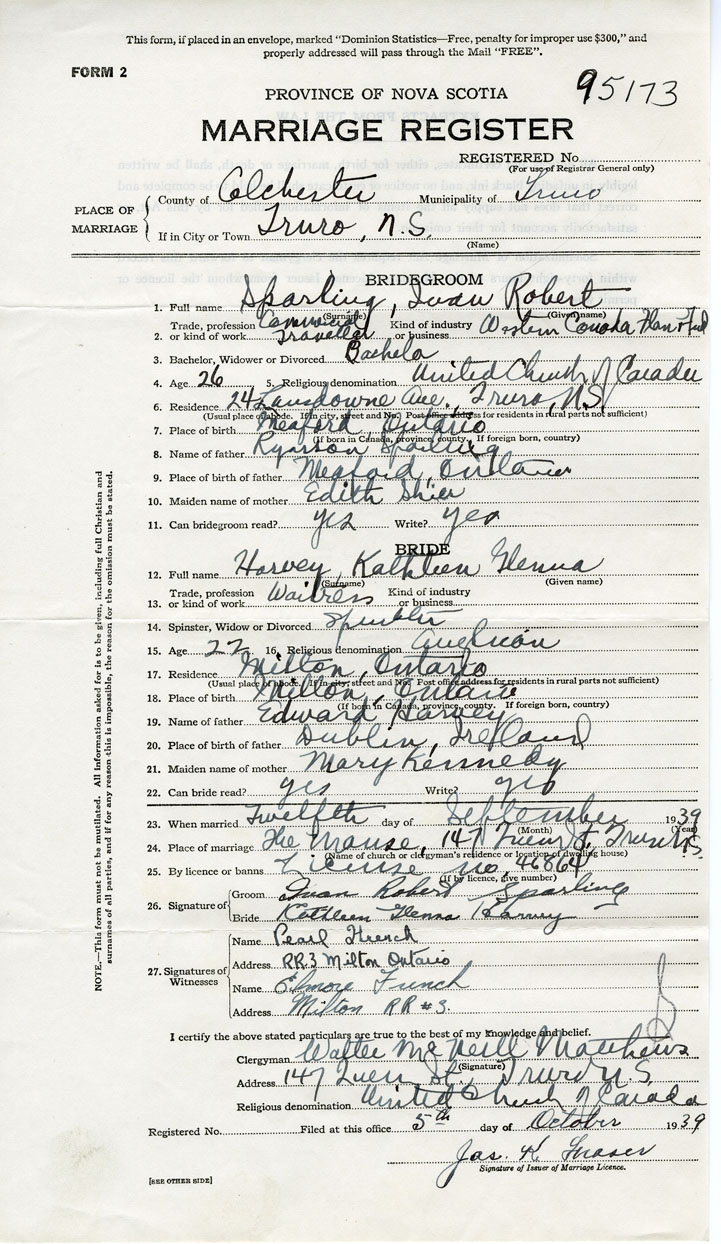 This form, if placed in an envelope, marked "Dominion Statistics—Free, penalty for improper use $300," and
properly addressed will pass through the Mail "FREE".
FORM 2
95173
PROVINCE OF NOVA SCOTIA
MARRIAGE REGISTER
REGISTERED No.
(For use of Registrar General only)
PLACE OF MARRIAGE
County of Colchester Municipality of Truro
If in City or Town Truro, N.S.
(Name)
BRIDEGROOM
1. Full name Sparling, Ivan Robert
(Surname) (Given name)
2. Trade, profession or kind of work Commercial Traveller Kind of industry or business Western Canada Flour
3. Bachelor, Widower or Divorced Bachelor
4. Age 26 5. Religious denomination United Church of Canada
6. Residence 24 Lansdowne Ave., Truro, N.S.
(Usual place of abode. If in city, street and No. Post office address for residents in rural parts not sufficient)
7. Place of birth Meaford, Ontario
(If born in Canada, province, county. If foreign born, country)
8. Name of father Ryerson Sparling
9. Place of birth of father Meaford, Ontario
10. Maiden name of mother Edith Shier
11. Can bridegroom read? yes Write? yes
BRIDE
12. Full name Harvey, Kathleen Glenna
(Surname) (Given name)
13. Trade, profession or kind of work Waitress Kind of industry or business
14. Spinster, Widow or Divorced Spinster
15. Age 22 16. Religious denomination Anglican
17. Residence Milton, Ontario
(Usual place of abode. If in city, street and No. Post office address for residents in rural parts not sufficient)
18. Place of birth Milton, Ontario
(If born in Canada, province, county. If foreign born, country)
19. Name of father Edward Harvey
20. Place of birth of father Dublin, Ireland
21. Maiden name of mother Mary Kennedy
22. Can bride read? yes Write? yes
23. When married Twelfth day of September 1939
(Month) (Year)
24. Place of marriage The Manse, 147 Queen St. Truro N.S.
(Name of church or clergyman's residence or location of dwelling house)
25. By licence or banns License no. 46864
(If by licence, give number)
26. Signature of
Groom Ivan Robert Sparling
Bride Kathleen Glenna Harvey
27. Signatures of Witnesses
Name Pearl French
Address RR3 Milton Ontario
Name Elmore French
Address Milton RR #3.
I certify the above stated particulars are true to the best of my knowledge and belief.
Clergyman Walter McNeill Matthews
(Signature)
Address 147 Queen St., Truro N.S.
Religious denomination United Church of Canada
Registered No. Filed at this office 5th day of October 1939
Jas. K. Fraser
Signature of Issuer of Marriage Licence.
[SEE OTHER SIDE]
NOTE.—This form must not be mutilated. All information asked for is to be given, including full Christian and
surnames of all parties, and if for any reason this is impossible, the reason for the omission must be stated.